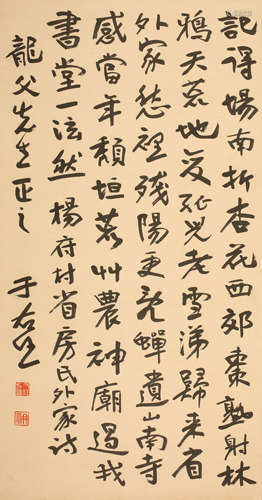 記得場南折杏花西郊棗熟射林
鴉天荒地变孤兒老雪涕歸來省
外家愁裡殘陽更亂蟬遺山南寺
感當年頹垣荒艸農神廟過我
書堂一泫然楊府村省房氏外家詩
龍父先生正之
于右任